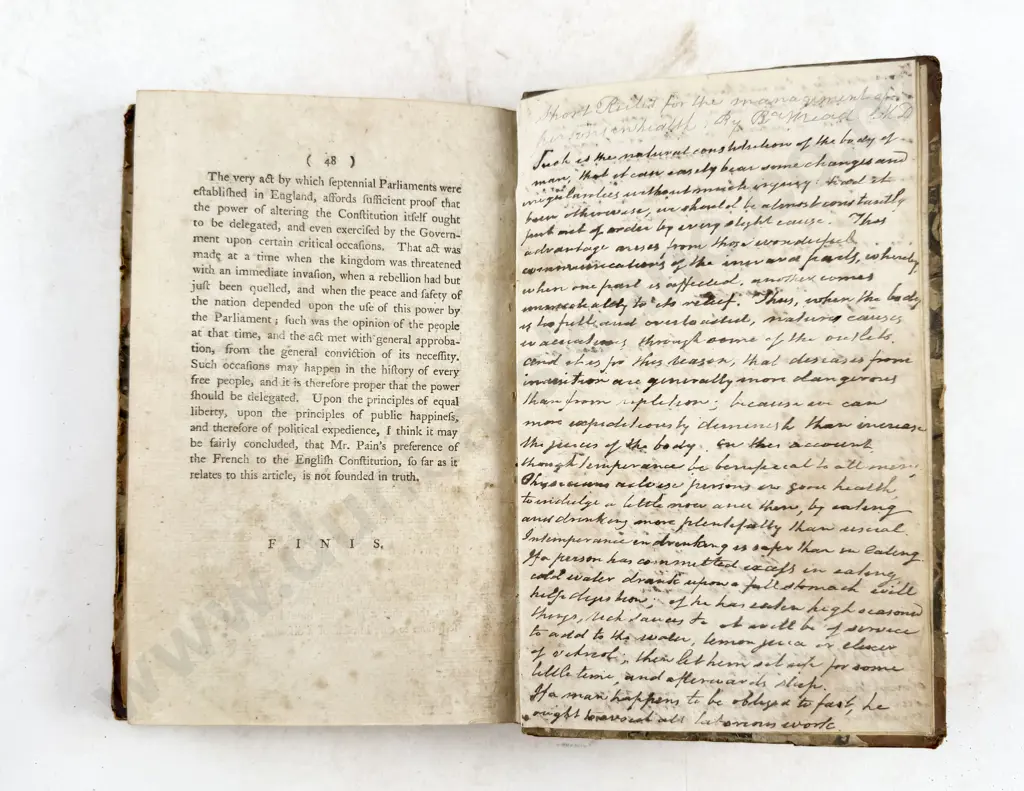 ( 48 )
The very act by which septennial Parliaments were
eſtabliſhed in England, affords ſufficient proof that
the power of altering the Conſtitution itſelf ought
to be delegated, and even exerciſed by the Govern-
ment upon certain critical occaſions. That act was
made at a time when the kingdom was threatened
with an immediate invaſion, when a rebellion had but
juſt been quelled, and when the peace and ſafety of
the nation depended upon the uſe of this power by
the Parliament; ſuch was the opinion of the people
at that time, and the act met with general approba-
tion, from the general conviction of its neceſſity.
Such occaſions may happen in the hiſtory of every
free people, and it is therefore proper that the power
ſhould be delegated. Upon the principles of equal
liberty, upon the principles of public happineſs,
and therefore of political expedience, I think it may
be fairly concluded, that Mr. Pain's preference of
the French to the Engliſh Conſtitution, ſo far as it
relates to this article, is not founded in truth.
F I N I S.
Short Rules for the management of
in health By Mead M D
Such is the natural constitution of the body of
man, that it can easely bear some changes and
without much injury: had it
been otherwise, we should be almost constantly
put out of order by every slight cause. This
advantage arises from those wonderful
communications of the inward parts, whereby,
when one part is affected, another comes
immediatly to its relief. Thus, when the body
is too full and overloaded, nature causes
evacuations through some of the outlets.
and it is for this reason, that diseases from
inanition are generally more dangerous
than from repletion; because we can
more expeditiously diminish than increase
the juices of the body. on this account
though temperance be beneficial to all men,
Physicians advise persons in good health,
to indulge a little now and then, by eating
and drinking more plentifully than usual.
Intemperance in drinking is safer than in Eating.
If a person has committed excess in eating,
cold water drank upon a full stomach will
help digestion; if he has eaten high seasoned
things, rich sauces &c it will be of service
to add to the water, lemon juice or elixer
of vitreol; then let him sit up for some
little time, and afterwards sleep.
If a man happens to be obliged to fast, he
ought to avoid all laborious work.